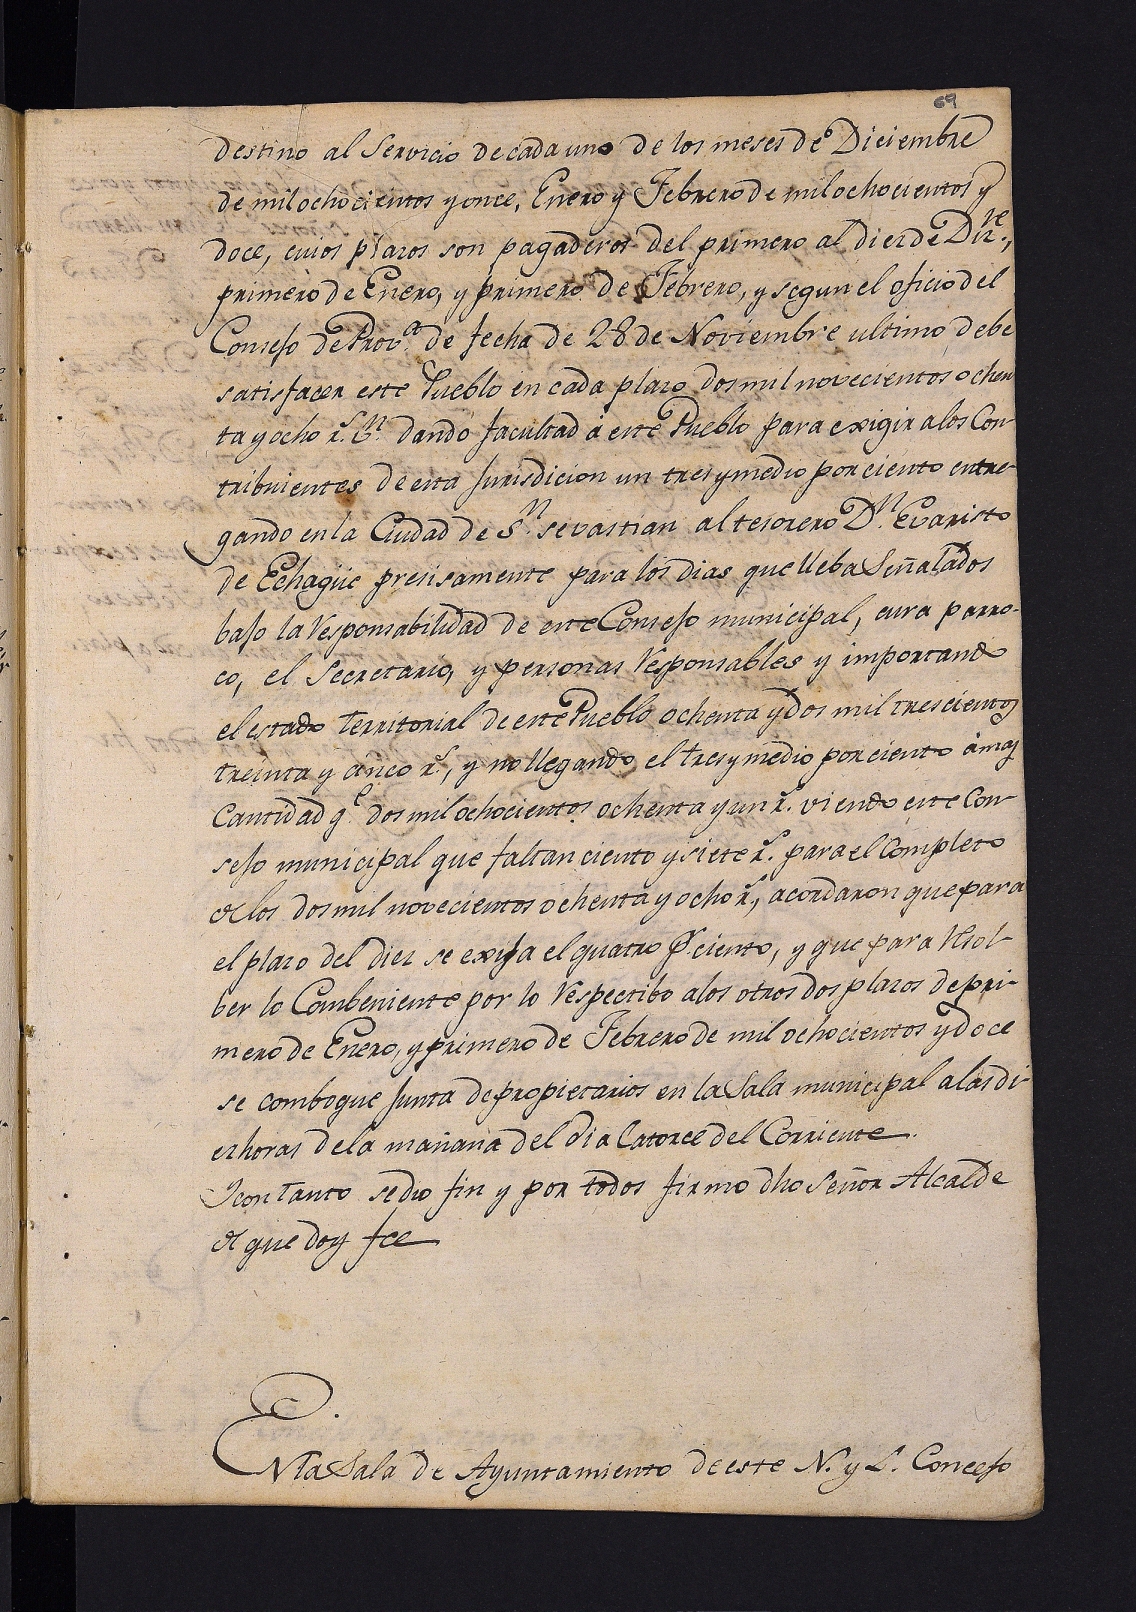 69
destino al Servicio de cada uno de los meses de Diciembre
de mil ochocientos y once, Enero y Febrero de mil ochocientos y
doce, cuios plazos son pagaderos del primero al diez de Dizre.,
primero de Enero, y primero de Febrero, y segun el oficio del
Consejo de Prova. de fecha de 28 de Noviembre ultimo debe
satisfacer este Pueblo en cada plazo dos mil novecientos ochen
ta y ocho rs. vn. dando facultad á este Pueblo para exigir a los Con
tribuientes de esta Jurisdicion un tres y medio por ciento entre-
gando en la Ciudad de Sn. sevastian al tesorero Dn. Evaristo
de Echagüe presisamente para los dias que lleba Señalados
bajo la Responsabilidad de este Consejo municipal, cura parro-
co, el Secretario, y personas Responsables y importando
el estado territorial de este Pueblo ochenta y dos mil trescientos
treinta y cinco rs., y no llegando el tres y medio por ciento á mas
Cantidad qe. dos mil ochocientos ochenta y un rs. viendo este Con
sejo municipal que faltan ciento y siete rs. para el Completo
de los dos mil novecientos ochenta y ocho rs., acordaron que para
el plazo del diez se exija el quatro pr. ciento, y que para Resol-
ber lo Combeniente por lo Respectibo a los otros dos plazos de pri-
mero de Enero, y primero de Febrero de mil ochocientos y doce
se comboque Junta de propietarios en la Sala municipal a las di-
ez horas de la mañana del dia Catorce del Corriente.
Y con tanto se dio fin y por todos firmo dho Señor Alcalde
de que doy fee
En la Sala de Ayuntamiento de este N. y L. Concejo